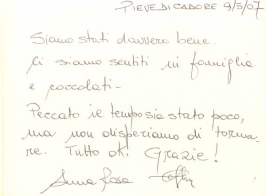 PIEVE DI CADORE 9/5/07
Siamo stati davvero bene.
Ci siamo sentiti in famiglia
e coccolati-
Peccato il tempo sia stato poco,
ma non disperiamo di torna-
re. Tutto ok! Grazie!
Anna Rosa